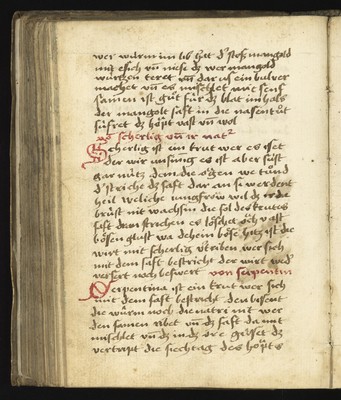 wer würm im lib hat d' stos mangold
mit essich vn̄ niese dz wer mangold
würtzen teret vn̄ dar us ein bulver
machet vn̄ es mischlet mit senf
samen ist gůt für dz blat im hals
der mangolt saft in die naslöcher
süfret dz höpt vast vn̄ wol
von scherlig vn̄ ir nat
Scherlig ist ein krut wer es isset
der wirt unsinig es ist aber süst
gar nütz dem die ögen we tůnd
d' striche dz saft dar an si werdent
heil weliche iungfrow wil dz ir die
brüst nit wachsin die sol des krutes
saft dar an strichen es löschet öch vast
bösen glust wa dehein böse hitz ist die
wirt mit scherlig vertriben wer sich
mit dem saft bestrichet der wirt wed'
versert noch beswert von serpentin
Serpentina ist ein krut wer sich
mit dem saft bestrichet den bissent
die würm noch die natren nit wer
den samen ribet vn̄ dz saft da mit
mischlet vn̄ dz in dz ore gůsset dz
vertript die siechtag des höptes